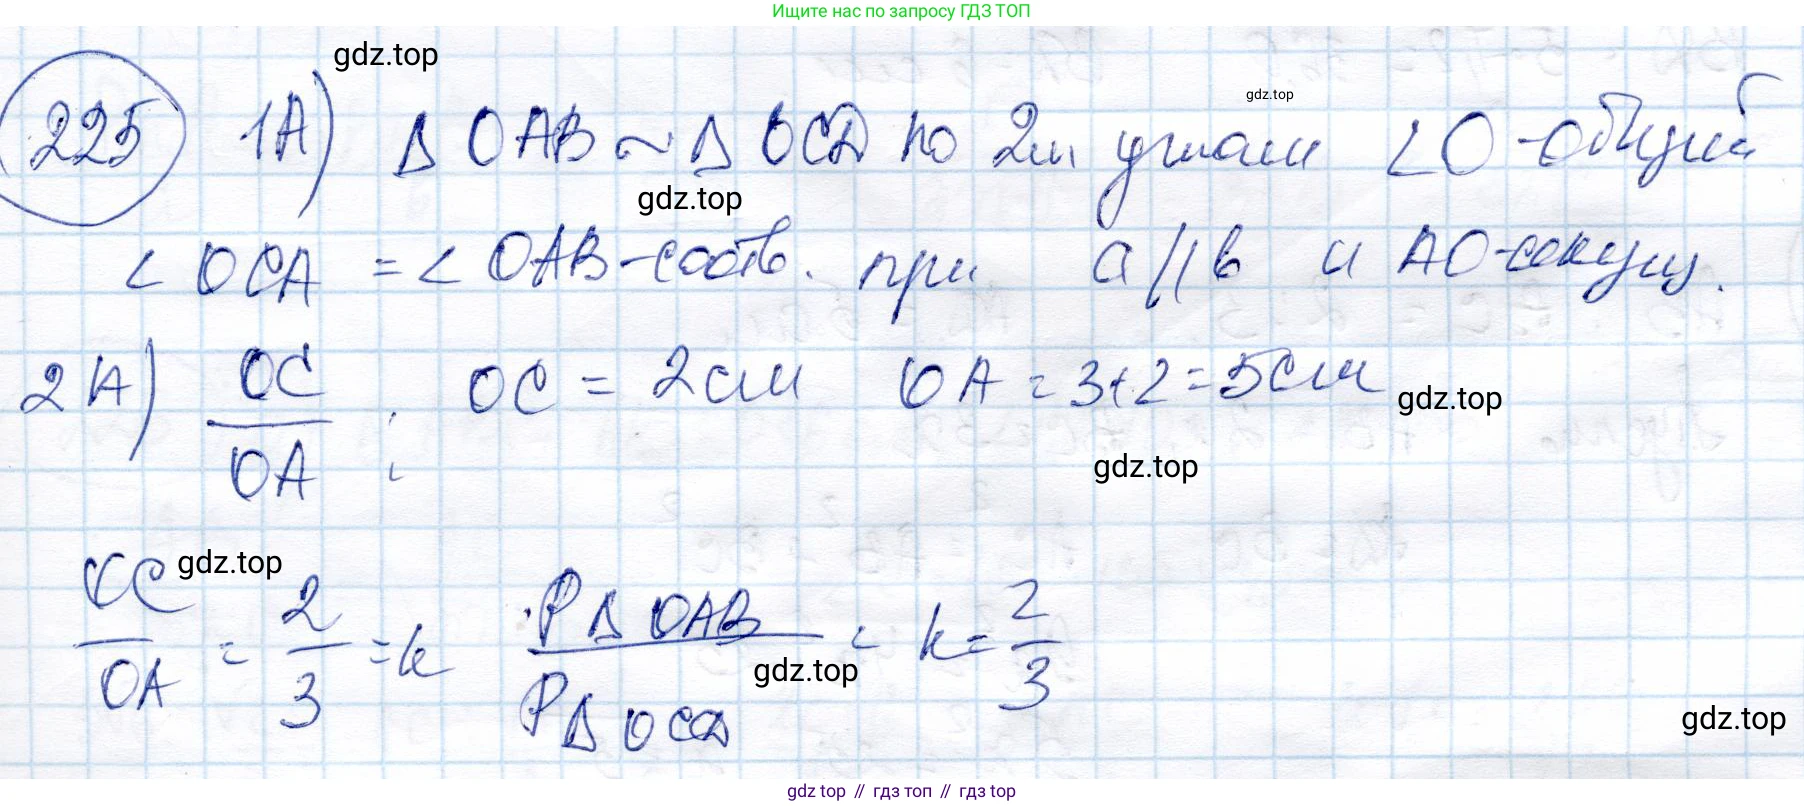 Ищите нас по запросу ГДЗ ТОП
gdz.top
gdz.top
225 1A) Δ OAB ~ Δ OCD по 2м углам ∠O - общий
gdz.top
∠ OCA = ∠ OAB - соотв. при a // b и AO - секущ.
2A) OC / OA ; OC = 2см OA = 3+2=5см
gdz.top
gdz.top
gdz.top
OC / OA = 2 / 3 = k P Δ OAB / P Δ OCD = k = 2 / 3
gdz.top
gdz.top
gdz top // гдз топ // gdz top